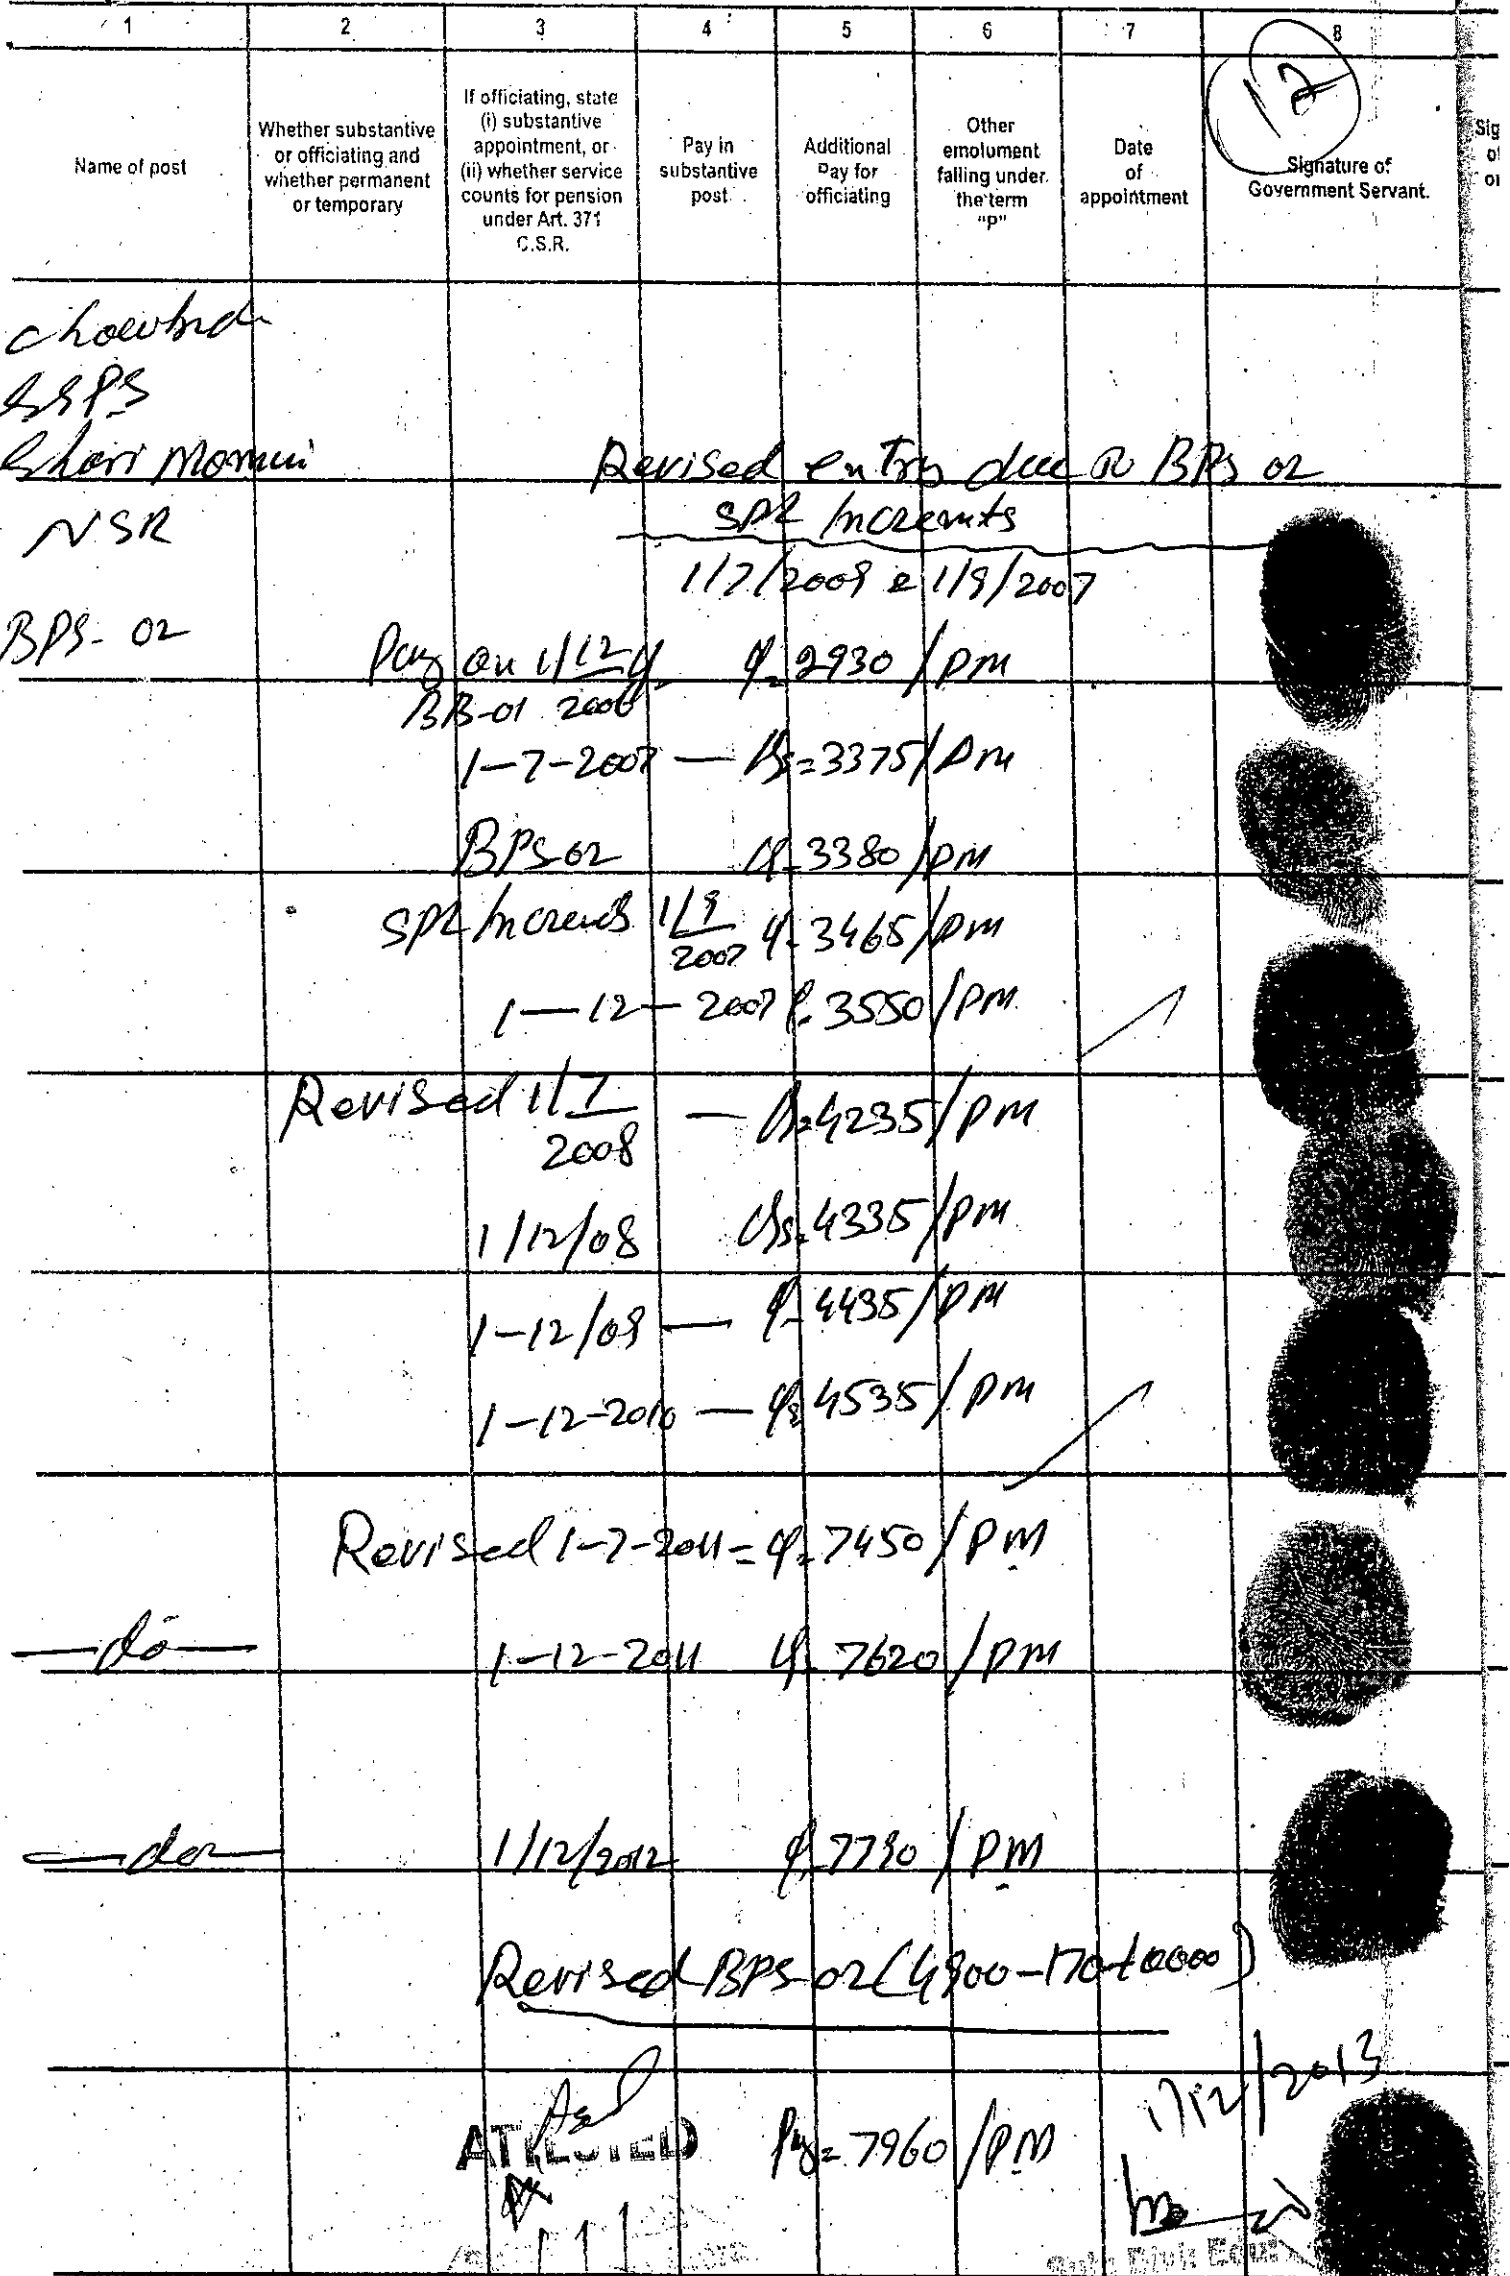 1 2 3 4 5 6 7 8
12
Name of post
Whether substantive or officiating and whether permanent or temporary
If officiating, state (i) substantive appointment, or (ii) whether service counts for pension under Art. 371 C.S.R.
Pay in substantive post
Additional Pay for officiating
Other emolument falling under the term "P"
Date of appointment
Signature of Government Servant.
Sig
of
or
GGPS
NSR
BPS-02
Revised entry due to BPS 02
SPL Increments
1/7/2008 & 1/9/2007
Pay on 1/12/2006 2930/PM
BB-01
1-7-2007 — Rs=3375/PM
BPS-02 3380/PM
SPL Increments 1/9/2007 3465/PM
1-12-2007 3550/PM
Revised 1/7/2008 — Rs=4235/PM
1/12/08 Rs.4335/PM
1-12/09 — 4435/PM
1-12-2010 — 4535/PM
Revised 1-7-2011 = 7450/PM
—do— 1-12-2011 7620/PM
—do— 1/12/2012 7790/PM
Revised BPS-02 (4900-170-10000)
1/12/2013
ATTESTED Pay=7960/PM